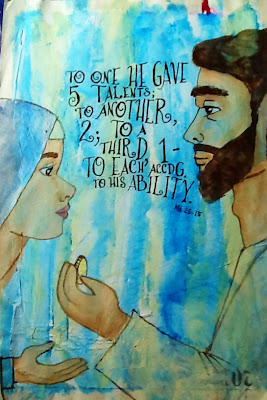 TO ONE HE GAVE
5 TALENTS;
TO ANOTHER,
2; TO A
THIRD 1-
TO EACH ACCDG.
TO HIS ABILITY.
Mt. 25:15